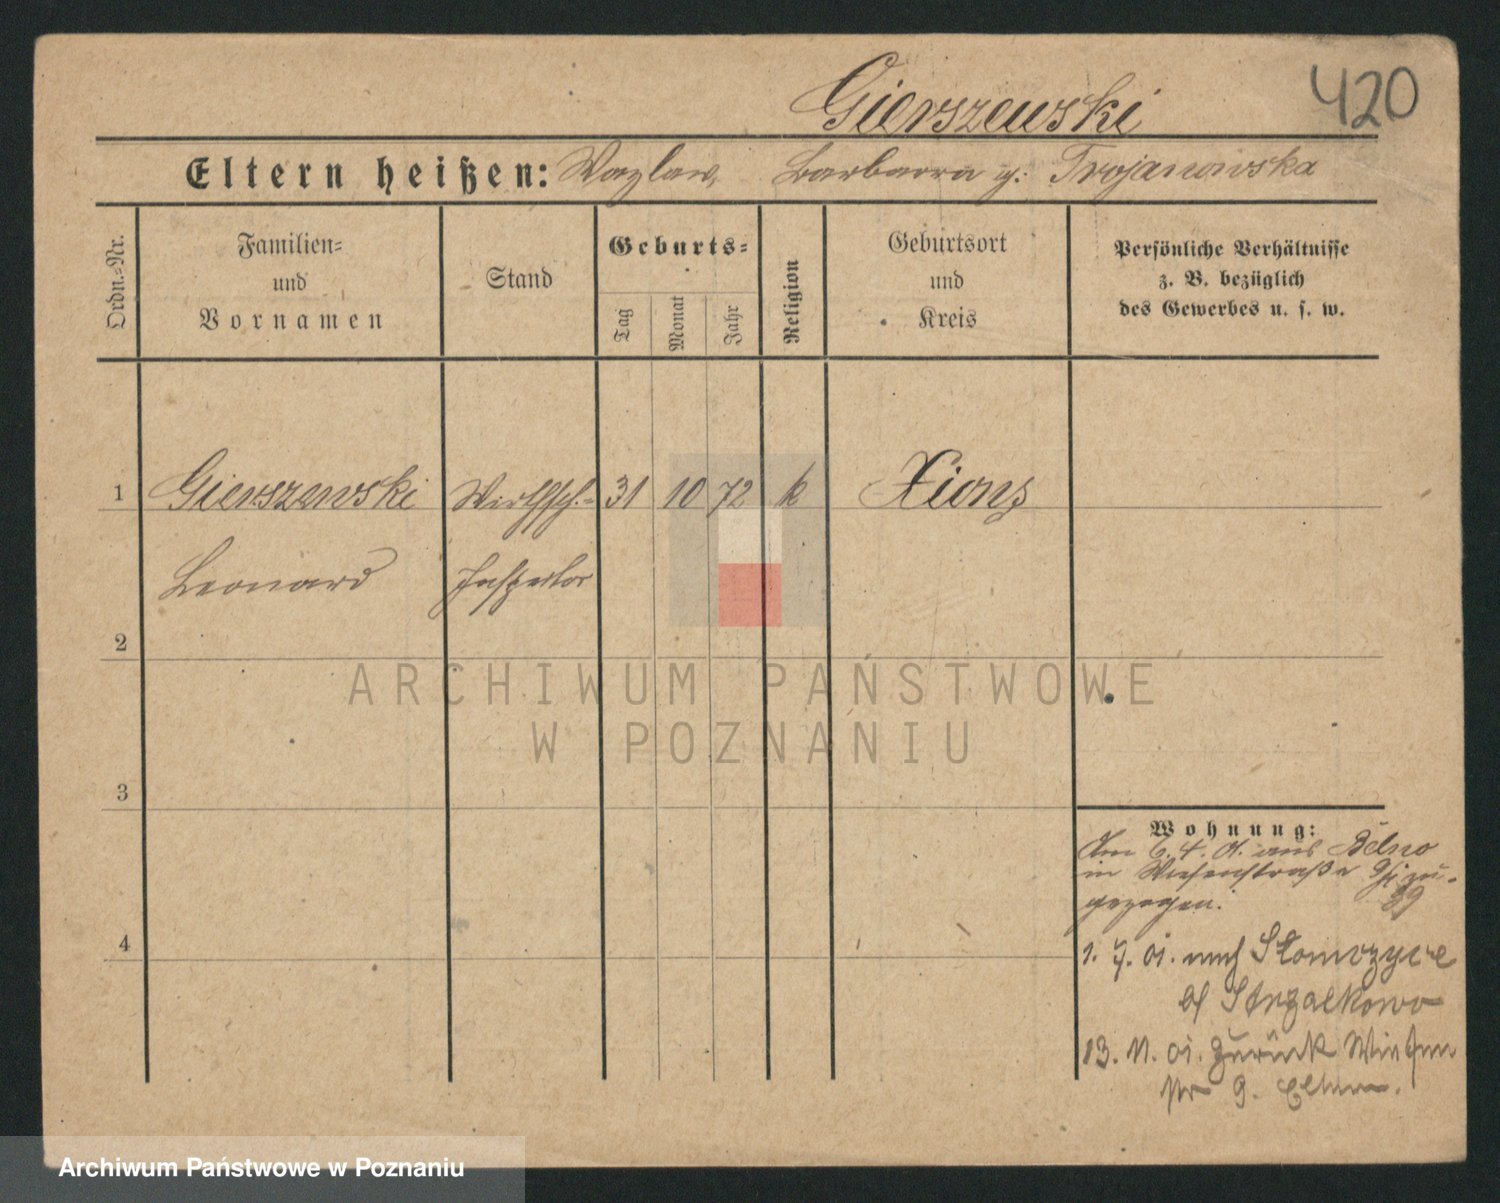 420
Gierszewski
Eltern heißen: Wazlaw, Barbara g. Trojanowska
Ordn.-Nr.
Familien-
und
Vornamen
Stand
Geburts-
Tag
Monat
Jahr
Religion
Geburtsort
und
Kreis
Persönliche Verhältnisse
z. B. bezüglich
des Gewerbes u. s. w.
1 Gierszewski Wirthsch.- 31 10 72 k Xions
Leonard Inspector
2
3
4
ARCHIWUM PAŃSTWOWE
W POZNANIU
Wohnung:
Am 6. 4. 01. aus
in Wiesenstraße zu-
gezogen.
1. 7. 01. nach Słomczyce
b/ Strzalkowo
13. 11. 01. zurück Wiesen
Nr 9. Eltern.
Archiwum Państwowe w Poznaniu